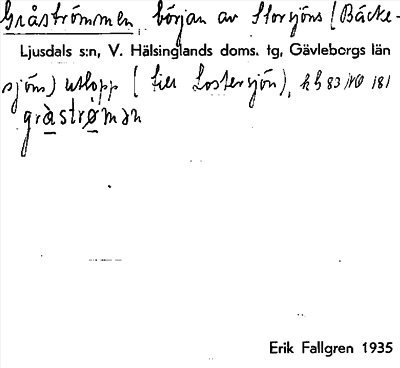 Gråströmmen, början av Storsjöns (Bäcke-
Ljusdals s:n, V. Hälsinglands doms. tg, Gävleborgs län
sjöns) utlopp (till Lostersjön), hb 83 NO 181
gråströmən
Erik Fallgren 1935